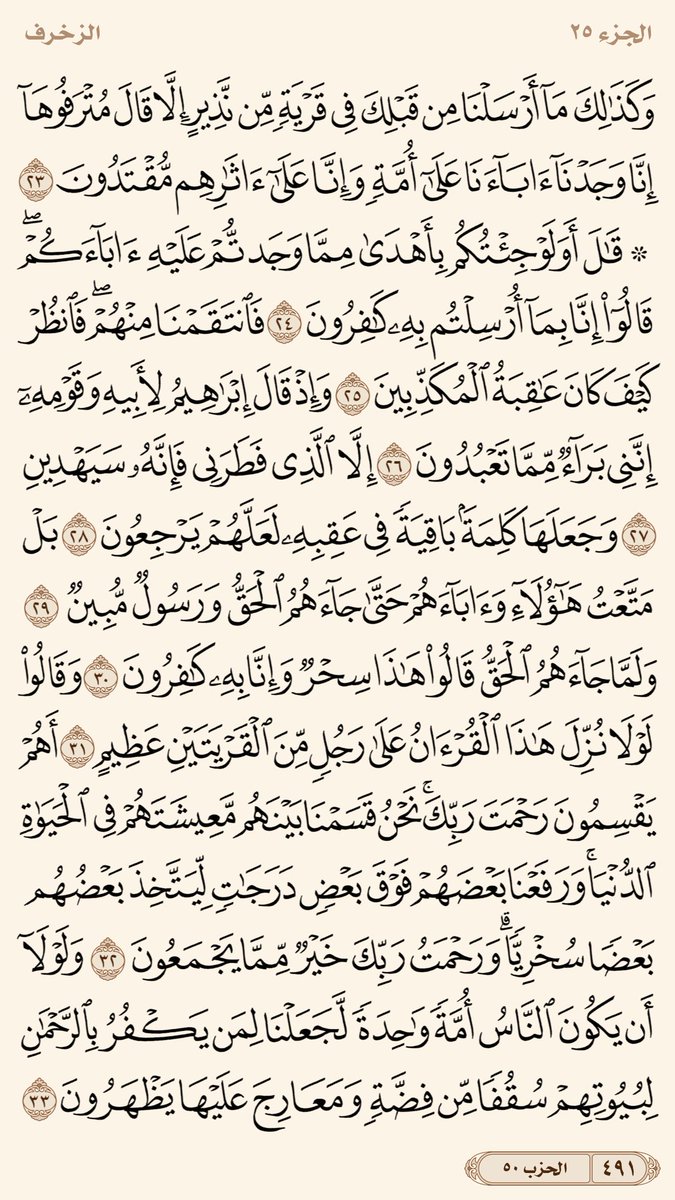 الجزء ٢٥ الزخرف
وَكَذَٰلِكَ مَآ أَرْسَلْنَا مِن قَبْلِكَ فِى قَرْيَةٍ مِّن نَّذِيرٍ إِلَّا قَالَ مُتْرَفُوهَآ
إِنَّا وَجَدْنَآ ءَابَآءَنَا عَلَىٰٓ أُمَّةٍ وَإِنَّا عَلَىٰٓ ءَاثَٰرِهِم مُّقْتَدُونَ ٢٣
۞ قَٰلَ أَوَلَوْ جِئْتُكُم بِأَهْدَىٰ مِمَّا وَجَدتُّمْ عَلَيْهِ ءَابَآءَكُمْ ۖ
قَالُوٓا۟ إِنَّا بِمَآ أُرْسِلْتُم بِهِۦ كَٰفِرُونَ ٢٤ فَٱنتَقَمْنَا مِنْهُمْ ۖ فَٱنظُرْ
كَيْفَ كَانَ عَٰقِبَةُ ٱلْمُكَذِّبِينَ ٢٥ وَإِذْ قَالَ إِبْرَٰهِيمُ لِأَبِيهِ وَقَوْمِهِۦٓ
إِنَّنِى بَرَآءٌ مِّمَّا تَعْبُدُونَ ٢٦ إِلَّا ٱلَّذِى فَطَرَنِى فَإِنَّهُۥ سَيَهْدِينِ
٢٧ وَجَعَلَهَا كَلِمَةًۢ بَاقِيَةً فِى عَقِبِهِۦ لَعَلَّهُمْ يَرْجِعُونَ ٢٨ بَلْ
مَتَّعْتُ هَٰٓؤُلَآءِ وَءَابَآءَهُمْ حَتَّىٰ جَآءَهُمُ ٱلْحَقُّ وَرَسُولٌ مُّبِينٌ ٢٩
وَلَمَّا جَآءَهُمُ ٱلْحَقُّ قَالُوا۟ هَٰذَا سِحْرٌ وَإِنَّا بِهِۦ كَٰفِرُونَ ٣٠ وَقَالُوا۟
لَوْلَا نُزِّلَ هَٰذَا ٱلْقُرْءَانُ عَلَىٰ رَجُلٍ مِّنَ ٱلْقَرْيَتَيْنِ عَظِيمٍ ٣١ أَهُمْ
يَقْسِمُونَ رَحْمَتَ رَبِّكَ ۚ نَحْنُ قَسَمْنَا بَيْنَهُم مَّعِيشَتَهُمْ فِى ٱلْحَيَوٰةِ
ٱلدُّنْيَا ۚ وَرَفَعْنَا بَعْضَهُمْ فَوْقَ بَعْضٍ دَرَجَٰتٍ لِّيَتَّخِذَ بَعْضُهُم
بَعْضًا سُخْرِيًّا ۗ وَرَحْمَتُ رَبِّكَ خَيْرٌ مِّمَّا يَجْمَعُونَ ٣٢ وَلَوْلَآ
أَن يَكُونَ ٱلنَّاسُ أُمَّةً وَٰحِدَةً لَّجَعَلْنَا لِمَن يَكْفُرُ بِٱلرَّحْمَٰنِ
لِبُيُوتِهِمْ سُقُفًا مِّن فِضَّةٍ وَمَعَارِجَ عَلَيْهَا يَظْهَرُونَ ٣٣
٤٩١ الحزب ٥٠